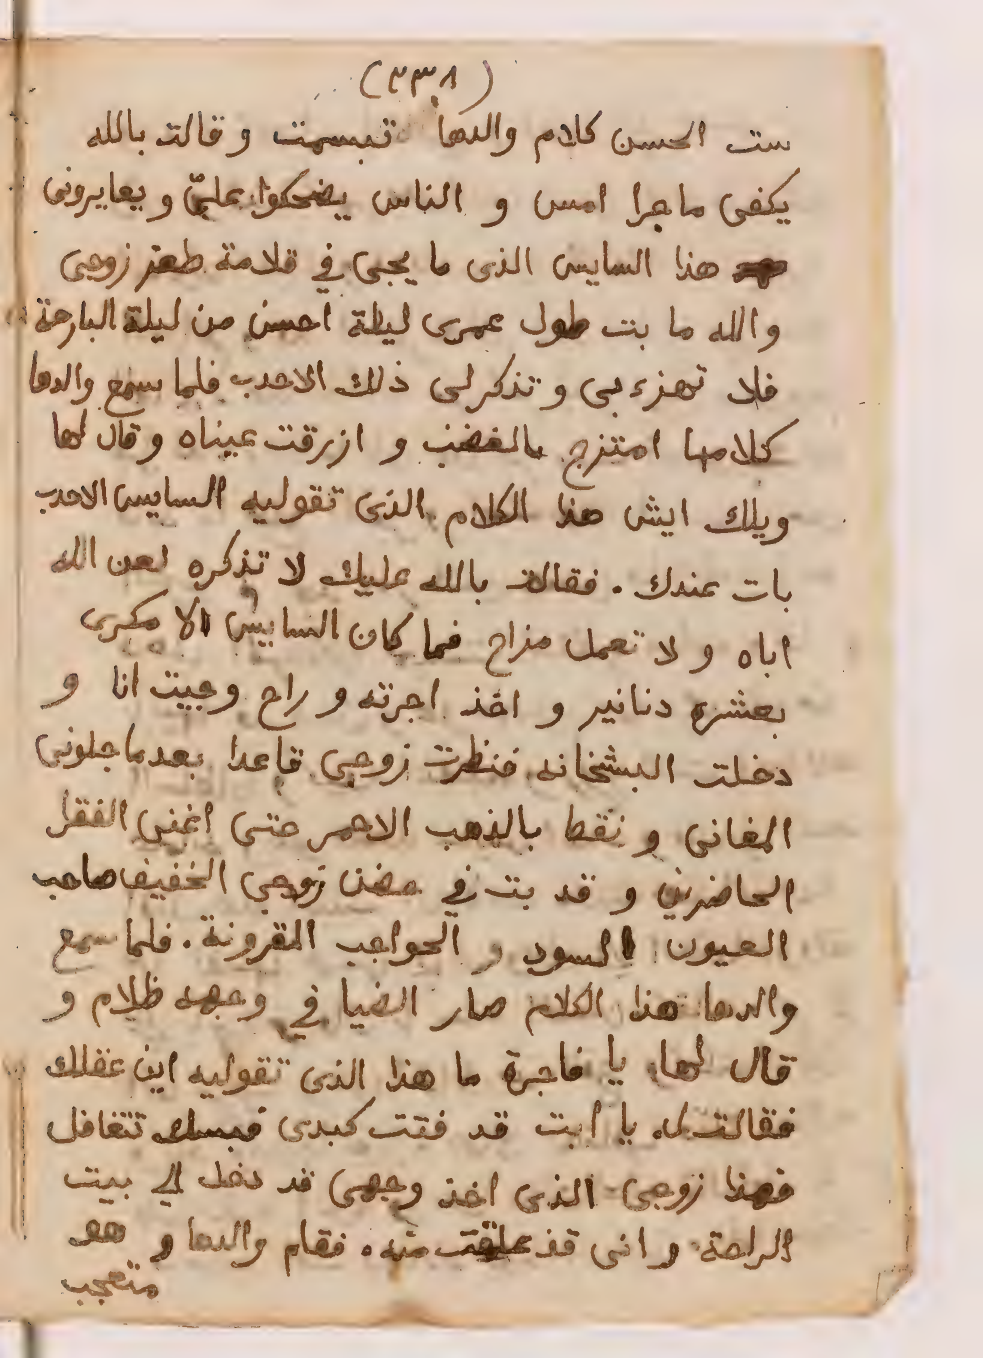 (٣٣٨)
ست الحسن كلام والدها تبسمت و قالت بالله
يكفى ما جرا امس و الناس يضحكوا عليّ و يعايرونى
هذا السايس الذى ما يجى فى قلامة ظفر زوجى
والله ما بت طول عمرى ليلة احسن من ليلة البارحة
فلا تهزء بى و تذكر لى ذلك الاحدب فلما سمع والدها
كلامها امتزج بالغضب و ازرقت عيناه و قال لها
ويلك ايش هذا الكلام الذى تقوليه السايس الاحدب
بات عندك . فقالت بالله عليك لا تذكره لعن الله
اباه و لا تعمل مزاح فما كان السايس الا مكرى
بعشره دنانير و اخذ اجرته و راح وجيت انا و
دخلت البشخانه فنظرت زوجى قاعدا بعد ما جلونى
المغانى و نقط بالذهب الاحمر حتى اغنى الفقرا
الحاضرين و قد بت فى حضن زوجى الخفيف صاحب
العيون السود و الحواجب المقرونة . فلما سمع
والدها هذا الكلام صار الضيا في وجهه ظلام و
قال لها يا فاجرة ما هذا الذى تقوليه اين عقلك
فقالت له يا ابت قد فتت كبدى فبسك تتغافل
فهذا زوجى الذى اخذ وجهى قد دخل الى بيت
الراحة و انى قد علقت منه . فقام والدها و هو
متعجب